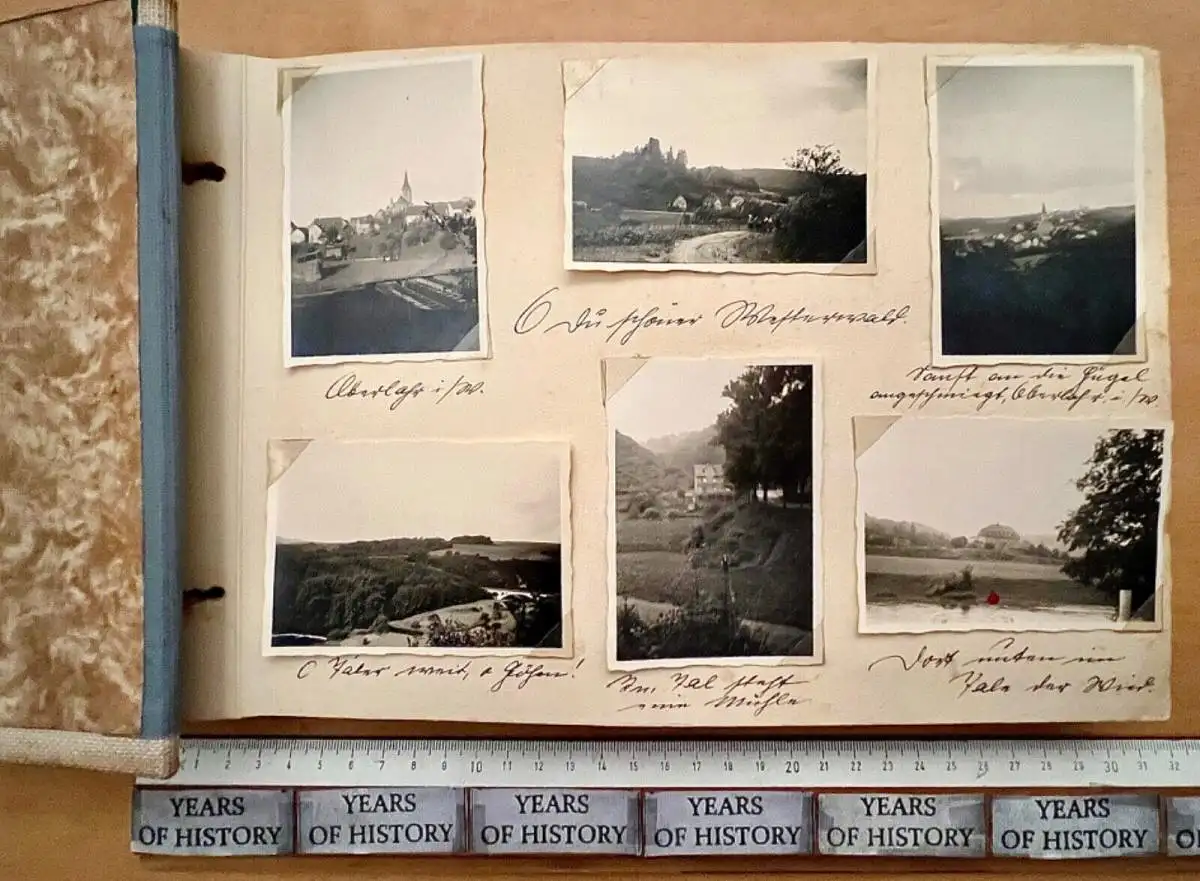 O Du schöner Westerwald.
Oberlahr i/W.
Sanft an die Hügel
angeschmiegt, Oberlahr i/W.
O Täler weit, o Höhen!
Im Tal steht
eine Mühle
Dort unten im
Tale der Wied.
1 2 3 4 5 6 7 8 9 10 11 12 13 14 15 16 17 18 19 20 21 22 23 24 25 26 27 28 29 30 31 32
YEARS OF HISTORY YEARS OF HISTORY YEARS OF HISTORY YEARS OF HISTORY YEARS OF HISTORY YEARS OF HISTORY